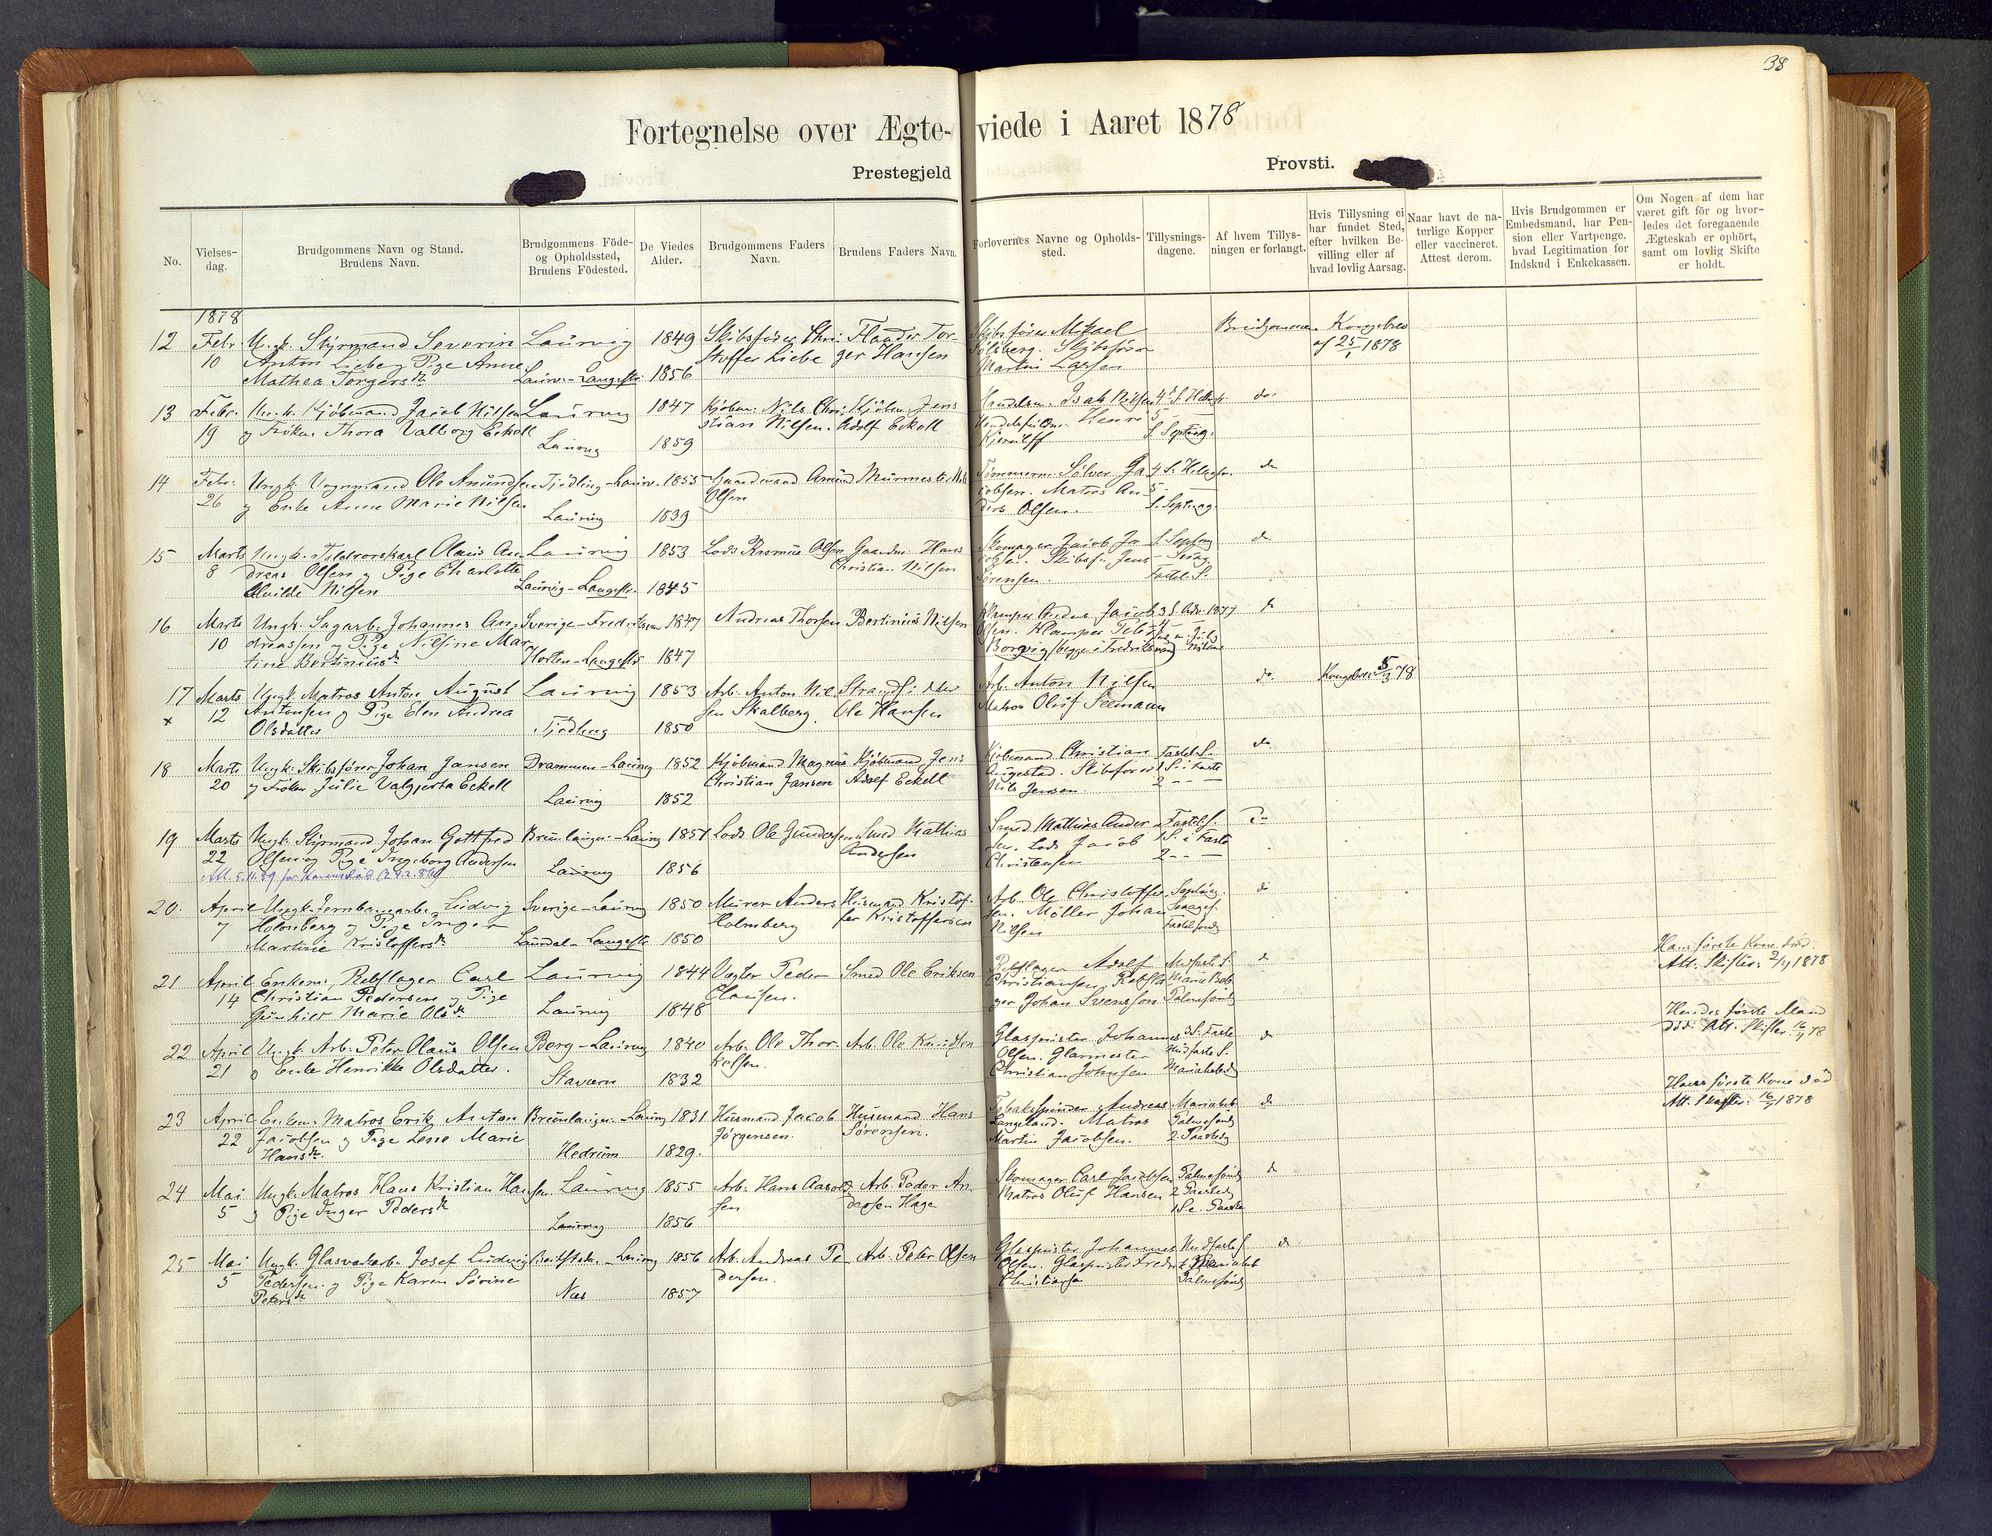 38
Fortegnelse over Ægte-viede i Aaret 1878
Prestegjeld
Provsti.
No.
Vielses-
dag.
Brudgommens Navn og Stand.
Brudens Navn.
Brudgommens Föde-
og Opholdssted,
Brudens Födested.
De Viedes
Alder.
Brudgommens Faders
Navn.
Brudens Faders Navn.
Forlovernes Navne og Opholds-
sted.
Tillysnings-
dagene.
Af hvem Tillys-
ningen er forlangt.
Hvis Tillysning ei
har fundet Sted,
efter hvilken Be-
villing eller af
hvad lovlig Aarsag.
Naar havt de na-
turlige Kopper
eller vaccineret.
Attest derom.
Hvis Brudgommen er
Embedsmand, har Pen-
sion eller Vartpenge.
hvad Legitimation for
Indskud i Enkekassen.
Om Nogen af dem har
været gift för og hvor-
ledes det foregaaende
Ægteskab er ophört,
samt om lovlig Skifte
er holdt.
1878
12 Febr. Ungk. Styrmand Severin Laurvig 1849 Skibsfører Chri Tor- Skibsfører Mikael Brudgommen Kongebrev
10 Anton Lieberg Pige Anne stoffer Liebe ger Hansen Solsberg. Skibsfører af 25/1 1878
Mathea Torgersdr. Laurv.-Langestr. 1856 Martin Larsen
13 Febr. Ungk. Kjøbmand Jacob Nilsen Laurvig 1847 Kjøbm. Nils Chri Kjøbm. Jens Handelsm. Isak Nilsen do.
19 og Frøken Thora Valborg Eckell stian Nilsen. Adolf Eckell Henri
Laurvig 1859 S. Septuag.
14 Febr. Ungk. Ole Amundsen Tjødling-Laurv. 1853 Gaardmand Amund Murmest. Tømmerm. Sølver Ja do
26 og Enke Anne Marie Nilsen Olsen cobsen. Matros An
Laurvig 1839 ders Olsen. S. Septuag.
15 Marts Ungk. Olaus An Laurvig 1853 Lods Rasmus Olsen Gaardm. Hans Skomager Jacob Ja S. Septuag do
8 dreas Olsen og Pige Charlotte Christian Nilsen Skibsf. Jens Sexag.
Alvilde Nilsen Laurvig-Langestr. 1845 Sørensen. Fastel. S.
16 Marts Ungk. Sagarb. Johannes An Sverige-Fredriksværn 1847 Andreas Thorsen Bertinius Nilsen Jacob 3 S. Adv. 1877 do
10 dreassen og Pige Nilsine Mar Olsen. Klamper
tine Bertiniusdr. Horten-Langestr 1847 Borgvig, begge i Fredriksværn
17 Marts Ungk. Matros Anton August Laurvig 1853 Arb. Anton Nil Arb. Anton Nilsen do. Kongebrev 5/3 78
x 12 Antonsen og Pige Elen Andrea sen Skalberg. Ole Hansen Matros Oluf Seemann
Olsdatter Tjødling 1850
18 Marts Ungk. Skibsfører Johan Jansen Drammen-Laurvig 1852 Kjøbmand Magnus Kjøbmand Jens Kjøbmand Christian Fastel. S. do
20 og Frøken Julie Valgjerta Eckell Christian Jansen Adolf Eckell Augestad. Skibsfører 1 S. i Faste
Laurvig 1852 Nils Jensen 2 - -
19 Marts Ungk. Styrmand Johan Gottfred Brunlanges-Laurvig 1851 Lods Ole Gundersen Smed Mathias Smed Mathias Ander Fastel S.
22 Olsen og Pige Ingeborg Andersen Andersen sen. Lods Jacob 1 S. i Faste
Laurvig 1856 Christensen 2 - -
20. April Ungk. Jernbanearb. Ludvig Sverige-Laurvig 1850 Murer Anders Husmand Kristof Arb. Ole Christoffer Septuag. do
7 Holmberg og Pige Inger Holmberg fer Kristoffersen sen. Møller Johan Sexages.
Martine Kristoffersdr. Laurdal-Langestr 1850 Nilsen Fastel sønd
21 April Enkem. Rebslager Carl Laurvig 1844 Vægter Peder Smed Ole Eriksen Rebslager Adolf Midfaste S. do Hans første Kone død.
14 Christian Pedersen og Pige Clausen. Christiansen, Rebsla Mariæ Beb Att. Skifter. 2/4 1878
Gunhild Marie Olsdr. Laurvig 1848 ger Johan Svensson Palmesønd
22 April Ungk. Arb. Peter Olaus Olsen Berg-Laurvig 1840 Arb. Ole Thor Arb. Ole Knudsen Glaspuster Johannes 3 S. Faste do Hendes første Mand
21 og Enke Henrikke Olsdatter. kelsen. Olsen. Glarmester Midfaste S. død. Att. Skifter. 16/4 78
Stavern 1832 Christian Johnsen Mariæbebd
23 April Enkem. Matros Erik Anton Brunlanges-Laurvig 1831 Husmand Jacob Husmand Hans Tobakspinder Andreas Mariæbeb do Hans første Kone død
22 Jacobsen og Pige Marie Jørgensen. Sørensen. Langeland. Matros Palmesønd Att. Skifter. 16/4 1878
Hansdr. Hedrum 1829. Martin Jacobsen. 2 Paaskedg
24 Mai Ungk. Matros Hans Kristian Hansen Laurvig 1855 Arb. Hans Arb. Peder An Skomager Carl Jacobsen Palmesønd do
5 og Pige Inger Pedersdr. sen dersen Hage Matros Oluf Hansen 2 Paaskedg
Laurvig 1856 1 S. e. Paaske
25 Mai Ungk. Glasværkarb. Josef Ludvig Laurvig 1856 Arb. Andreas Pe Arb. Peter Olsen Glaspuster Johannes Midfaste S. do
5 Pedersen og Pige Karen Sørine dersen. Olsen. Glaspuster Fredrik Mariæbeb
Petersdr. Næs 1857 Christiansen Palmesønd